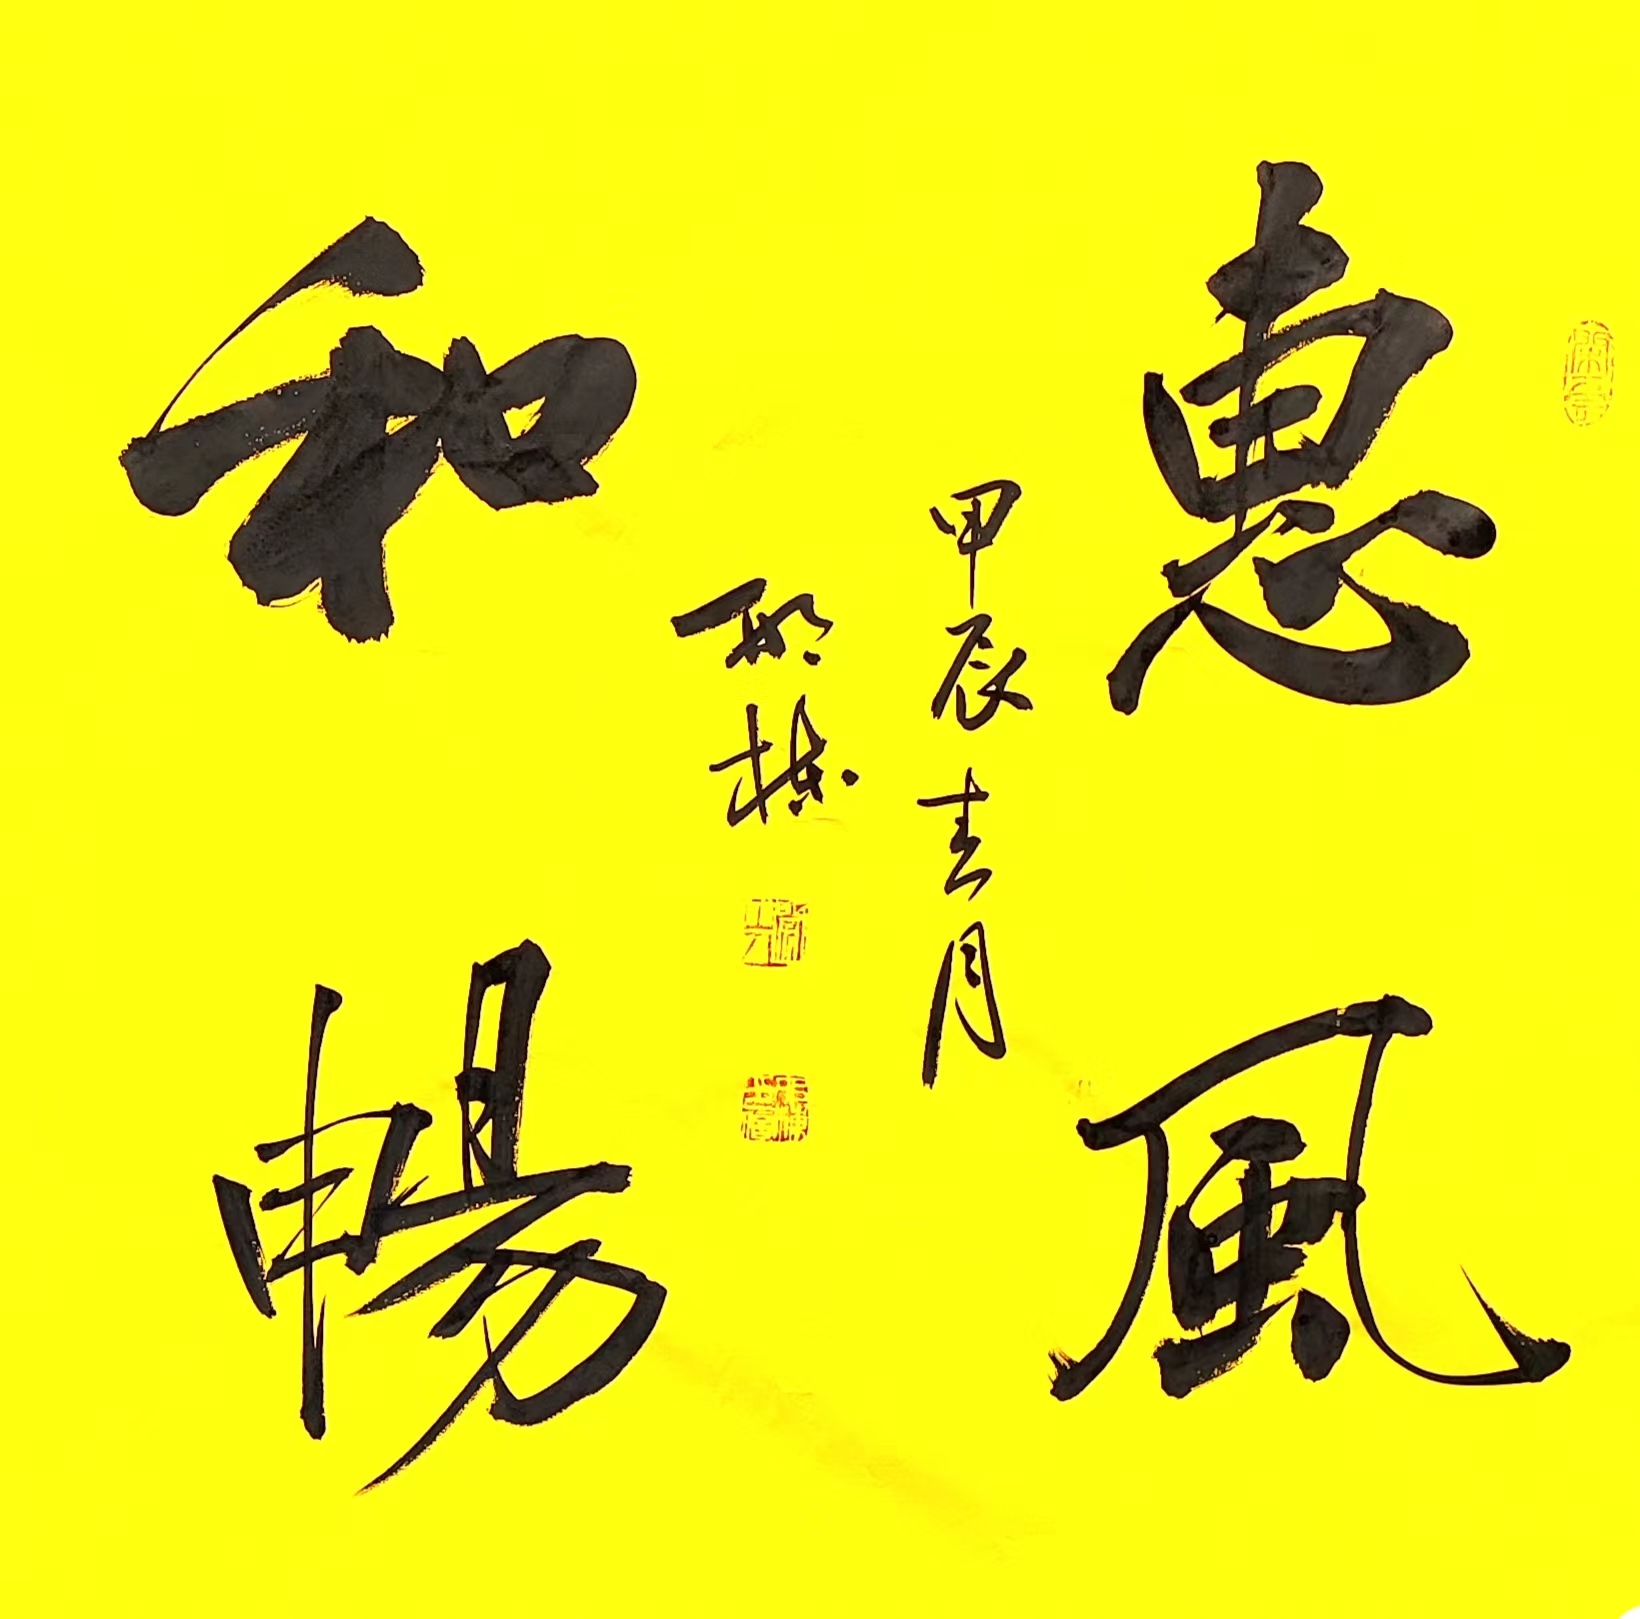 惠風
和暢
甲辰春月